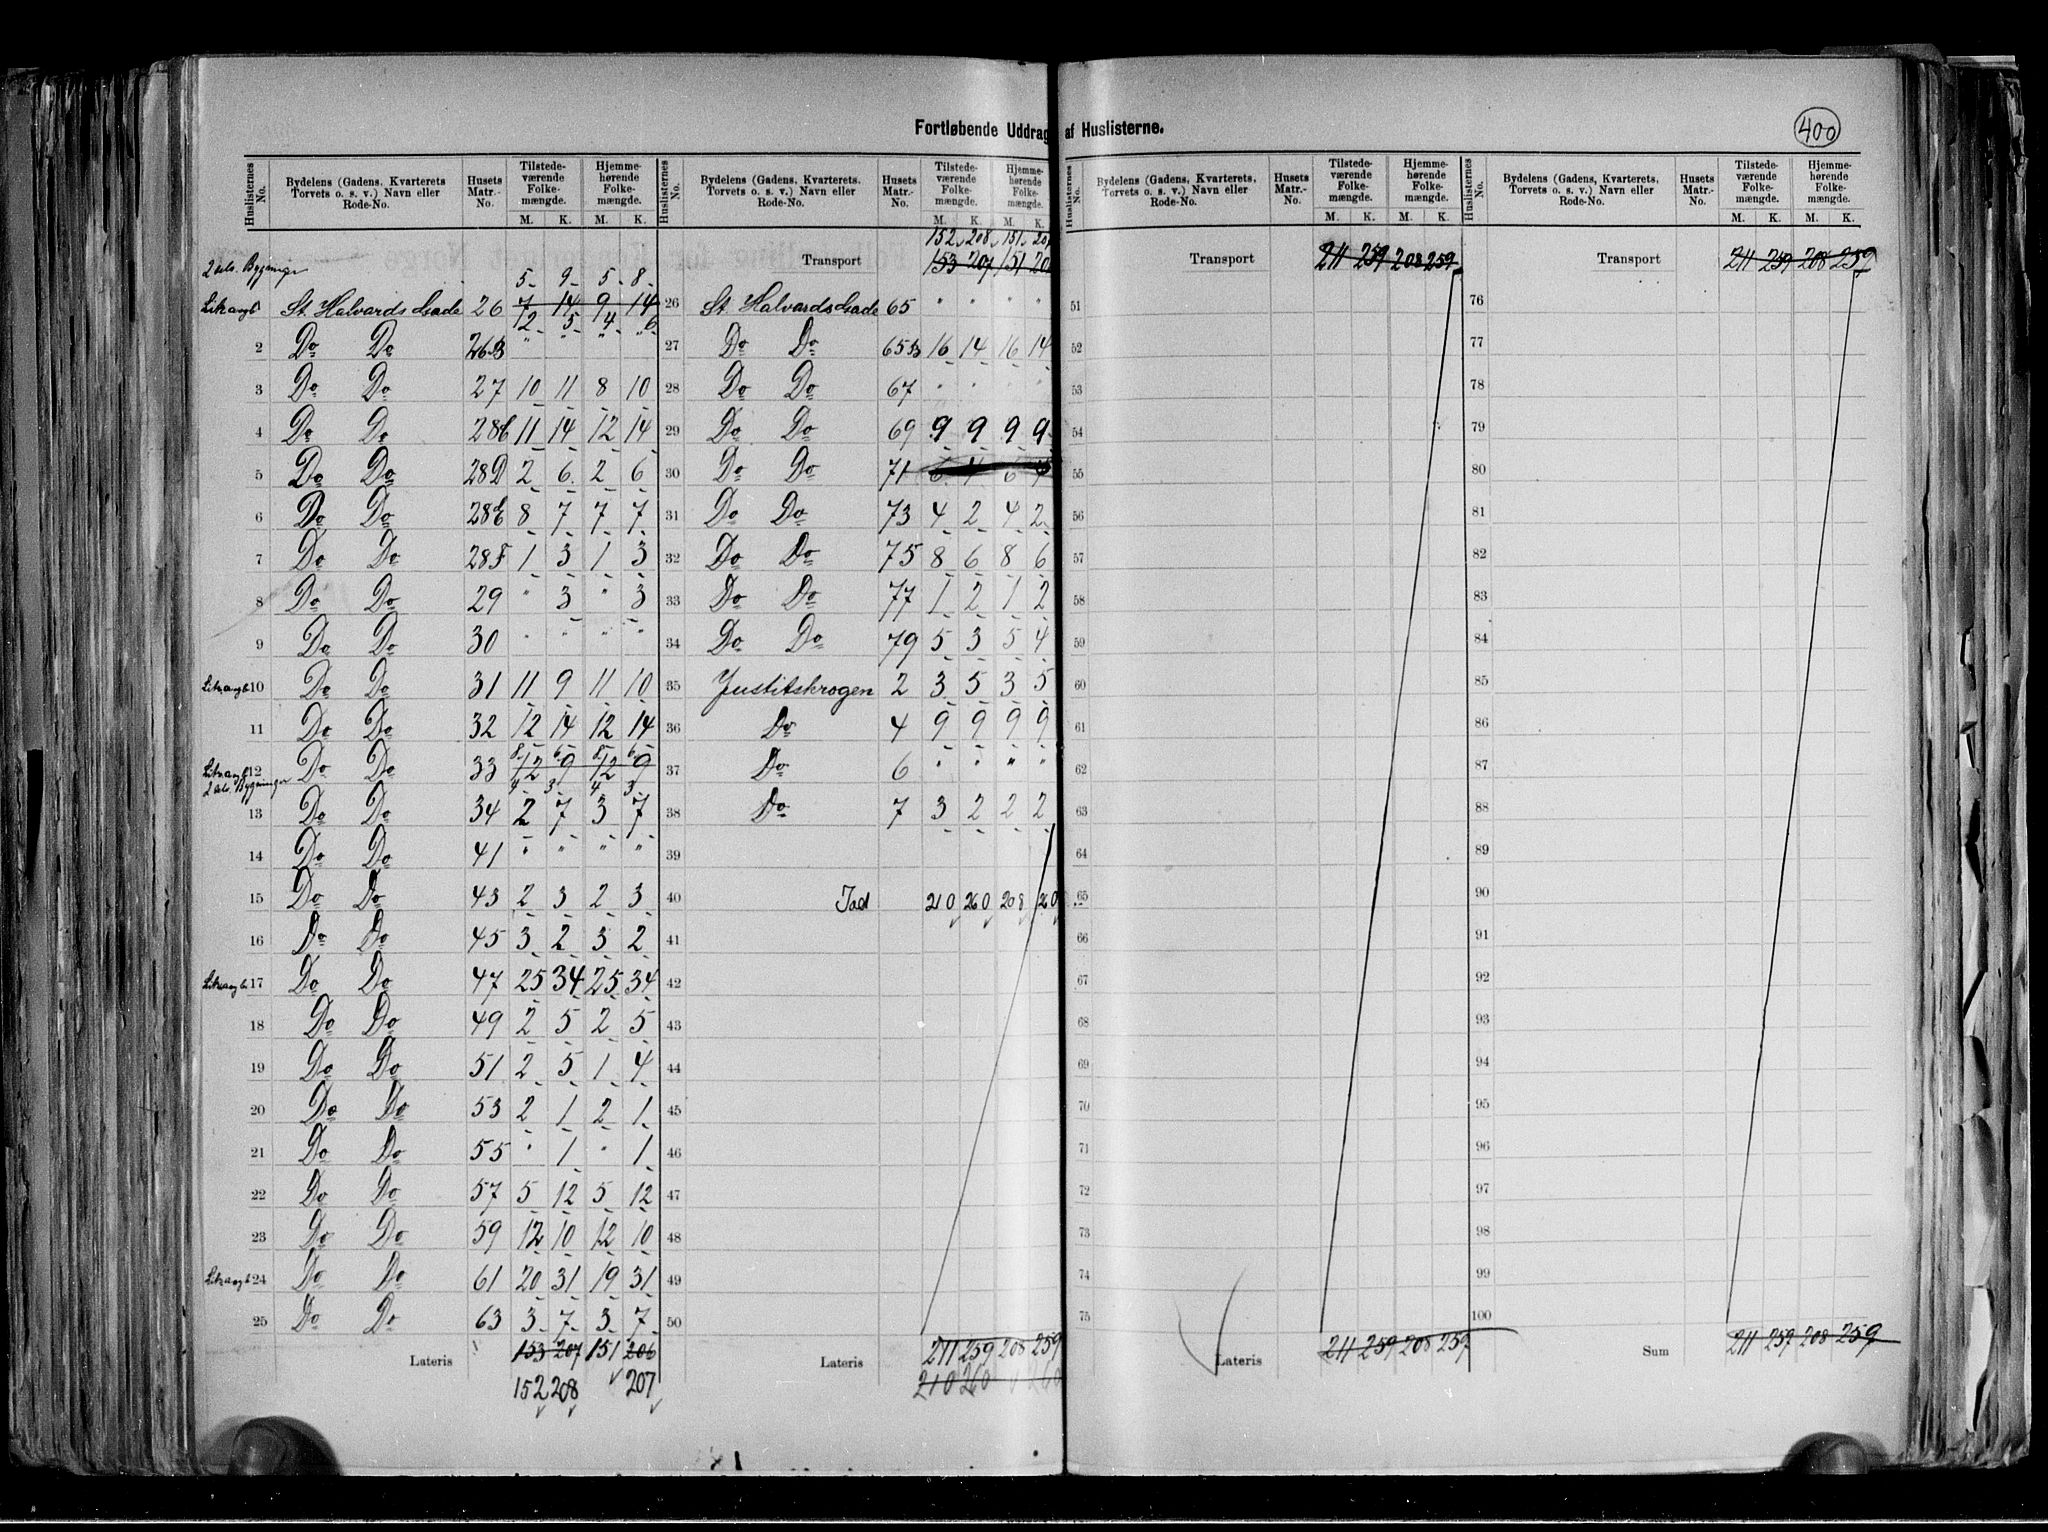 400
Fortløbende Uddrag af Huslisterne.
Huslisternes No. | Bydelens (Gadens, Kvarterets, Torvets o. s. v.) Navn eller Rode-No. | Husets Matr.-No. | Tilstedeværende Folkemængde. M. K. | Hjemmehørende Folkemængde. M. K.
2 adv. Bygninger 5 9 5 8
St. Halvards Gade 26 7 14 9 14
2 5 4 6
2 Do Do 26B " " " "
3 Do Do 27 10 11 8 10
4 Do Do 28C 11 14 12 14
5 Do Do 28D 2 6 2 6
6 Do Do 28E 8 7 7 7
7 Do Do 28F 1 3 1 3
8 Do Do 29 " 3 " 3
9 Do Do 30 " " " "
10 Do Do 31 11 9 11 10
11 Do Do 32 12 14 12 14
8 6 8 6
12 Do Do 33 12 9 12 9
4 3 4 3
13 Do Do 34 2 7 3 7
14 Do Do 41 " " " "
15 Do Do 43 2 3 2 3
16 Do Do 45 3 2 3 2
17 Do Do 47 25 34 25 34
18 Do Do 49 2 5 2 5
19 Do Do 51 2 5 1 4
20 Do Do 53 2 1 2 1
21 Do Do 55 " 1 " 1
22 Do Do 57 5 12 5 12
23 Do Do 59 12 10 12 10
24 Do Do 61 20 31 19 31
25 Do Do 63 3 7 3 7
Lateris 153 207 151 206
152 208 207
Huslisternes No. | Bydelens (Gadens, Kvarterets, Torvets o. s. v.) Navn eller Rode-No. | Husets Matr.-No. | Tilstedeværende Folkemængde. M. K. | Hjemmehørende Folkemængde. M. K.
152 208 151 207
Transport 153 207 151 206
26 St. Halvards Gade 65 " " " "
27 Do Do 65B 16 14 16 14
28 Do Do 67 " " " "
29 Do Do 69 9 9 9 9
30 Do Do 71 6 4 6 4
31 Do Do 73 4 2 4 2
32 Do Do 75 8 6 8 6
33 Do Do 77 1 2 1 2
34 Do Do 79 5 3 5 4
35 Justitskrogen 2 3 5 3 5
36 Do 4 9 9 9 9
37 Do 6 " " " "
38 Do 7 3 2 2 2
39
40 Tad 210 260 208 260
41
42
43
44
45
46
47
48
49
50
Lateris 211 259 208 259
210 260 260
Huslisternes No. | Bydelens (Gadens, Kvarterets, Torvets o. s. v.) Navn eller Rode-No. | Husets Matr.-No. | Tilstedeværende Folkemængde. M. K. | Hjemmehørende Folkemængde. M. K.
Transport 211 259 208 259
51
52
53
54
55
56
57
58
59
60
61
62
63
64
65
66
67
68
69
70
71
72
73
74
75
Lateris 211 259 208 259
Huslisternes No. | Bydelens (Gadens, Kvarterets, Torvets o. s. v.) Navn eller Rode-No. | Husets Matr.-No. | Tilstedeværende Folkemængde. M. K. | Hjemmehørende Folkemængde. M. K.
Transport 211 259 208 259
76
77
78
79
80
81
82
83
84
85
86
87
88
89
90
91
92
93
94
95
96
97
98
99
100
Sum 211 259 208 259